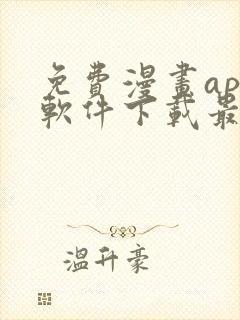 免費漫畫ap
軟件下載最
溫升豪